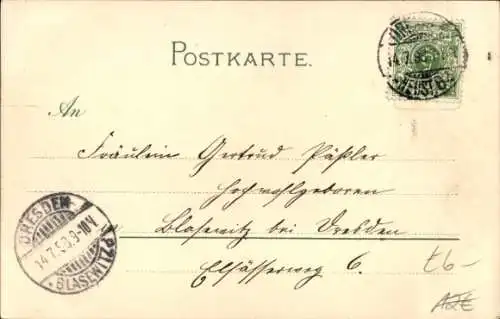 POSTKARTE.
14.7.
An
Fräulein Gertrud Päßler
Hochwohlgeboren
Blasewitz bei Dresden
Elsässerweg 6.
DRESDEN
14.7. 9-10V
BLASEWITZ